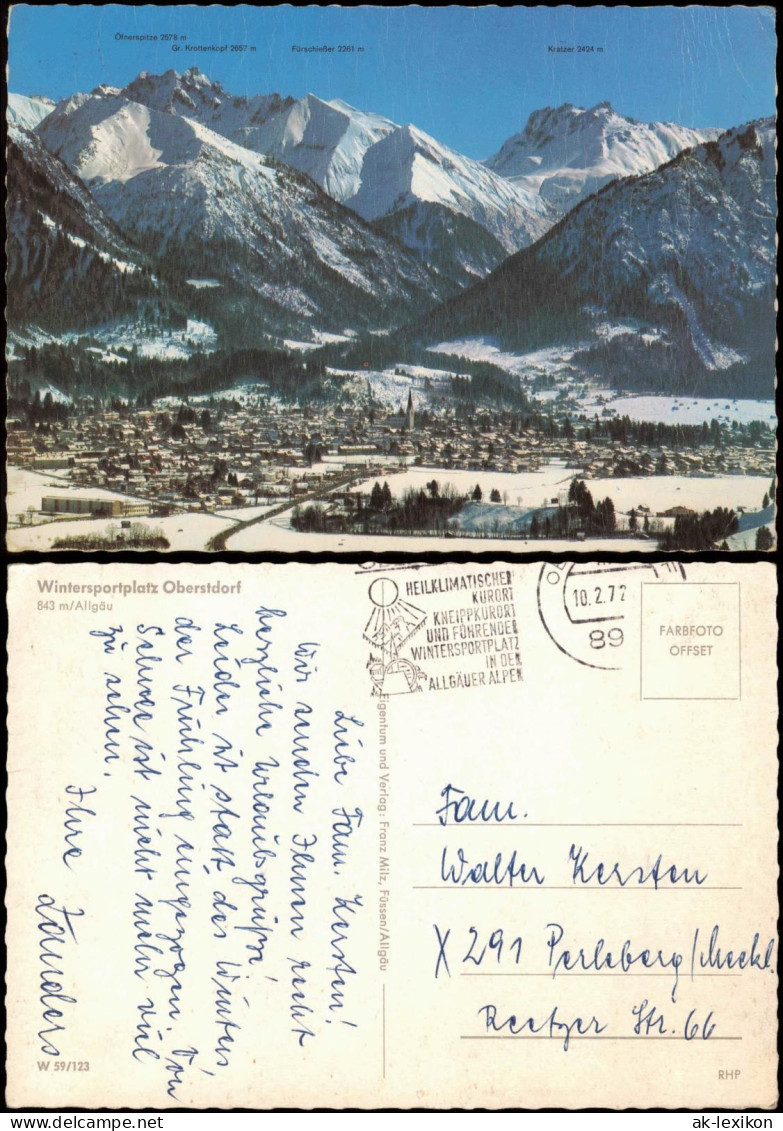 Öfnerspitze 2578 m
Gr. Krottenkopf 2657 m
Fürschießer 2261 m
Kratzer 2424 m
Wintersportplatz Oberstdorf
843 m/Allgäu
Liebe Fam. Kersten!
Wir senden Ihnen recht
herzliche Urlaubsgrüße!
Leider ist statt des Winters
der Frühling eingezogen. Von
Schnee ist nicht mehr viel
zu sehen.
Ihre
Zanders
W 59/123
Eigentum und Verlag: Franz Milz, Füssen/Allgäu
HEILKLIMATISCHER
KURORT
KNEIPPKURORT
UND FÜHRENDER
WINTERSPORTPLATZ
IN DEN
ALLGÄUER ALPEN
10.2.72
89
FARBFOTO
OFFSET
Fam.
Walter Kersten
X 291 Perleberg/Meckl.
Reetzer Str. 66
RHP
ak-lexikon